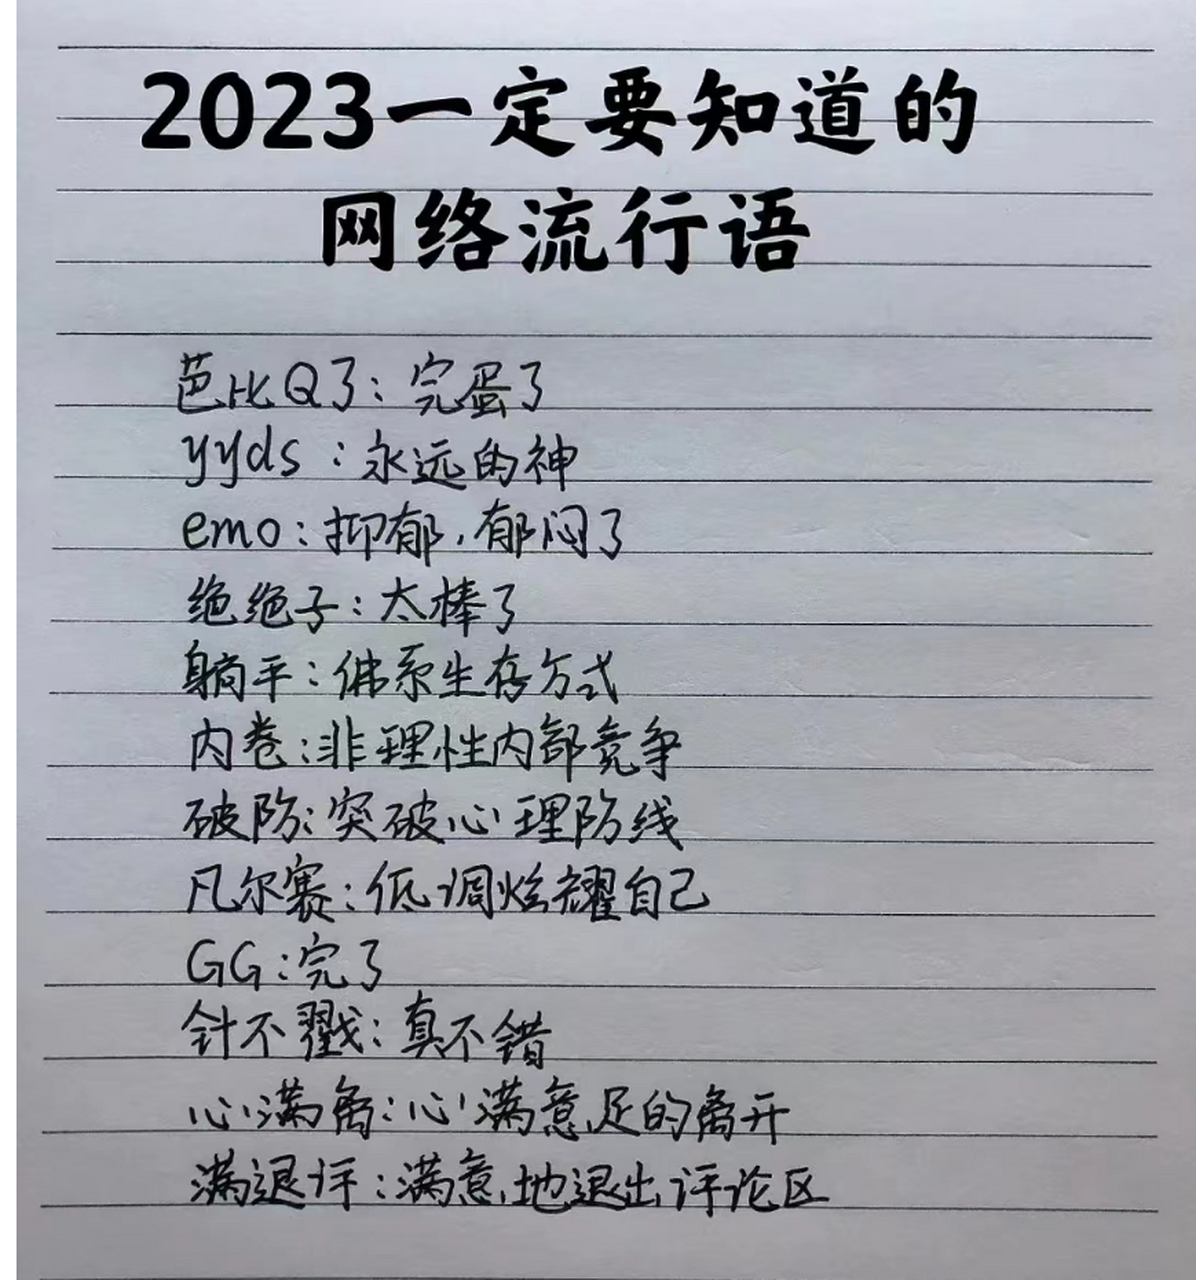 2023一定要知道的
网络流行语
芭比Q了：完蛋了
yyds：永远的神
emo：抑郁，郁闷了
绝绝子：太棒了
躺平：佛系生存方式
内卷：非理性内部竞争
破防：突破心理防线
凡尔赛：低调炫耀自己
GG：完了
针不戳：真不错
心满离：心满意足的离开
满退坪：满意地退出评论区